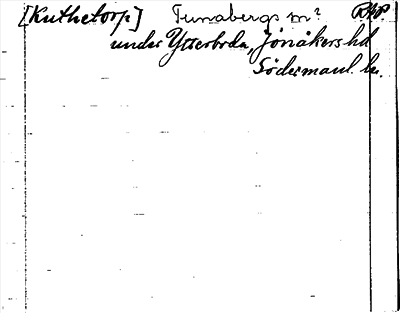 [Kuthetorp] Tunabergs sn?
under Ytterboda, Jönåkers hd
Södermanl. ln.